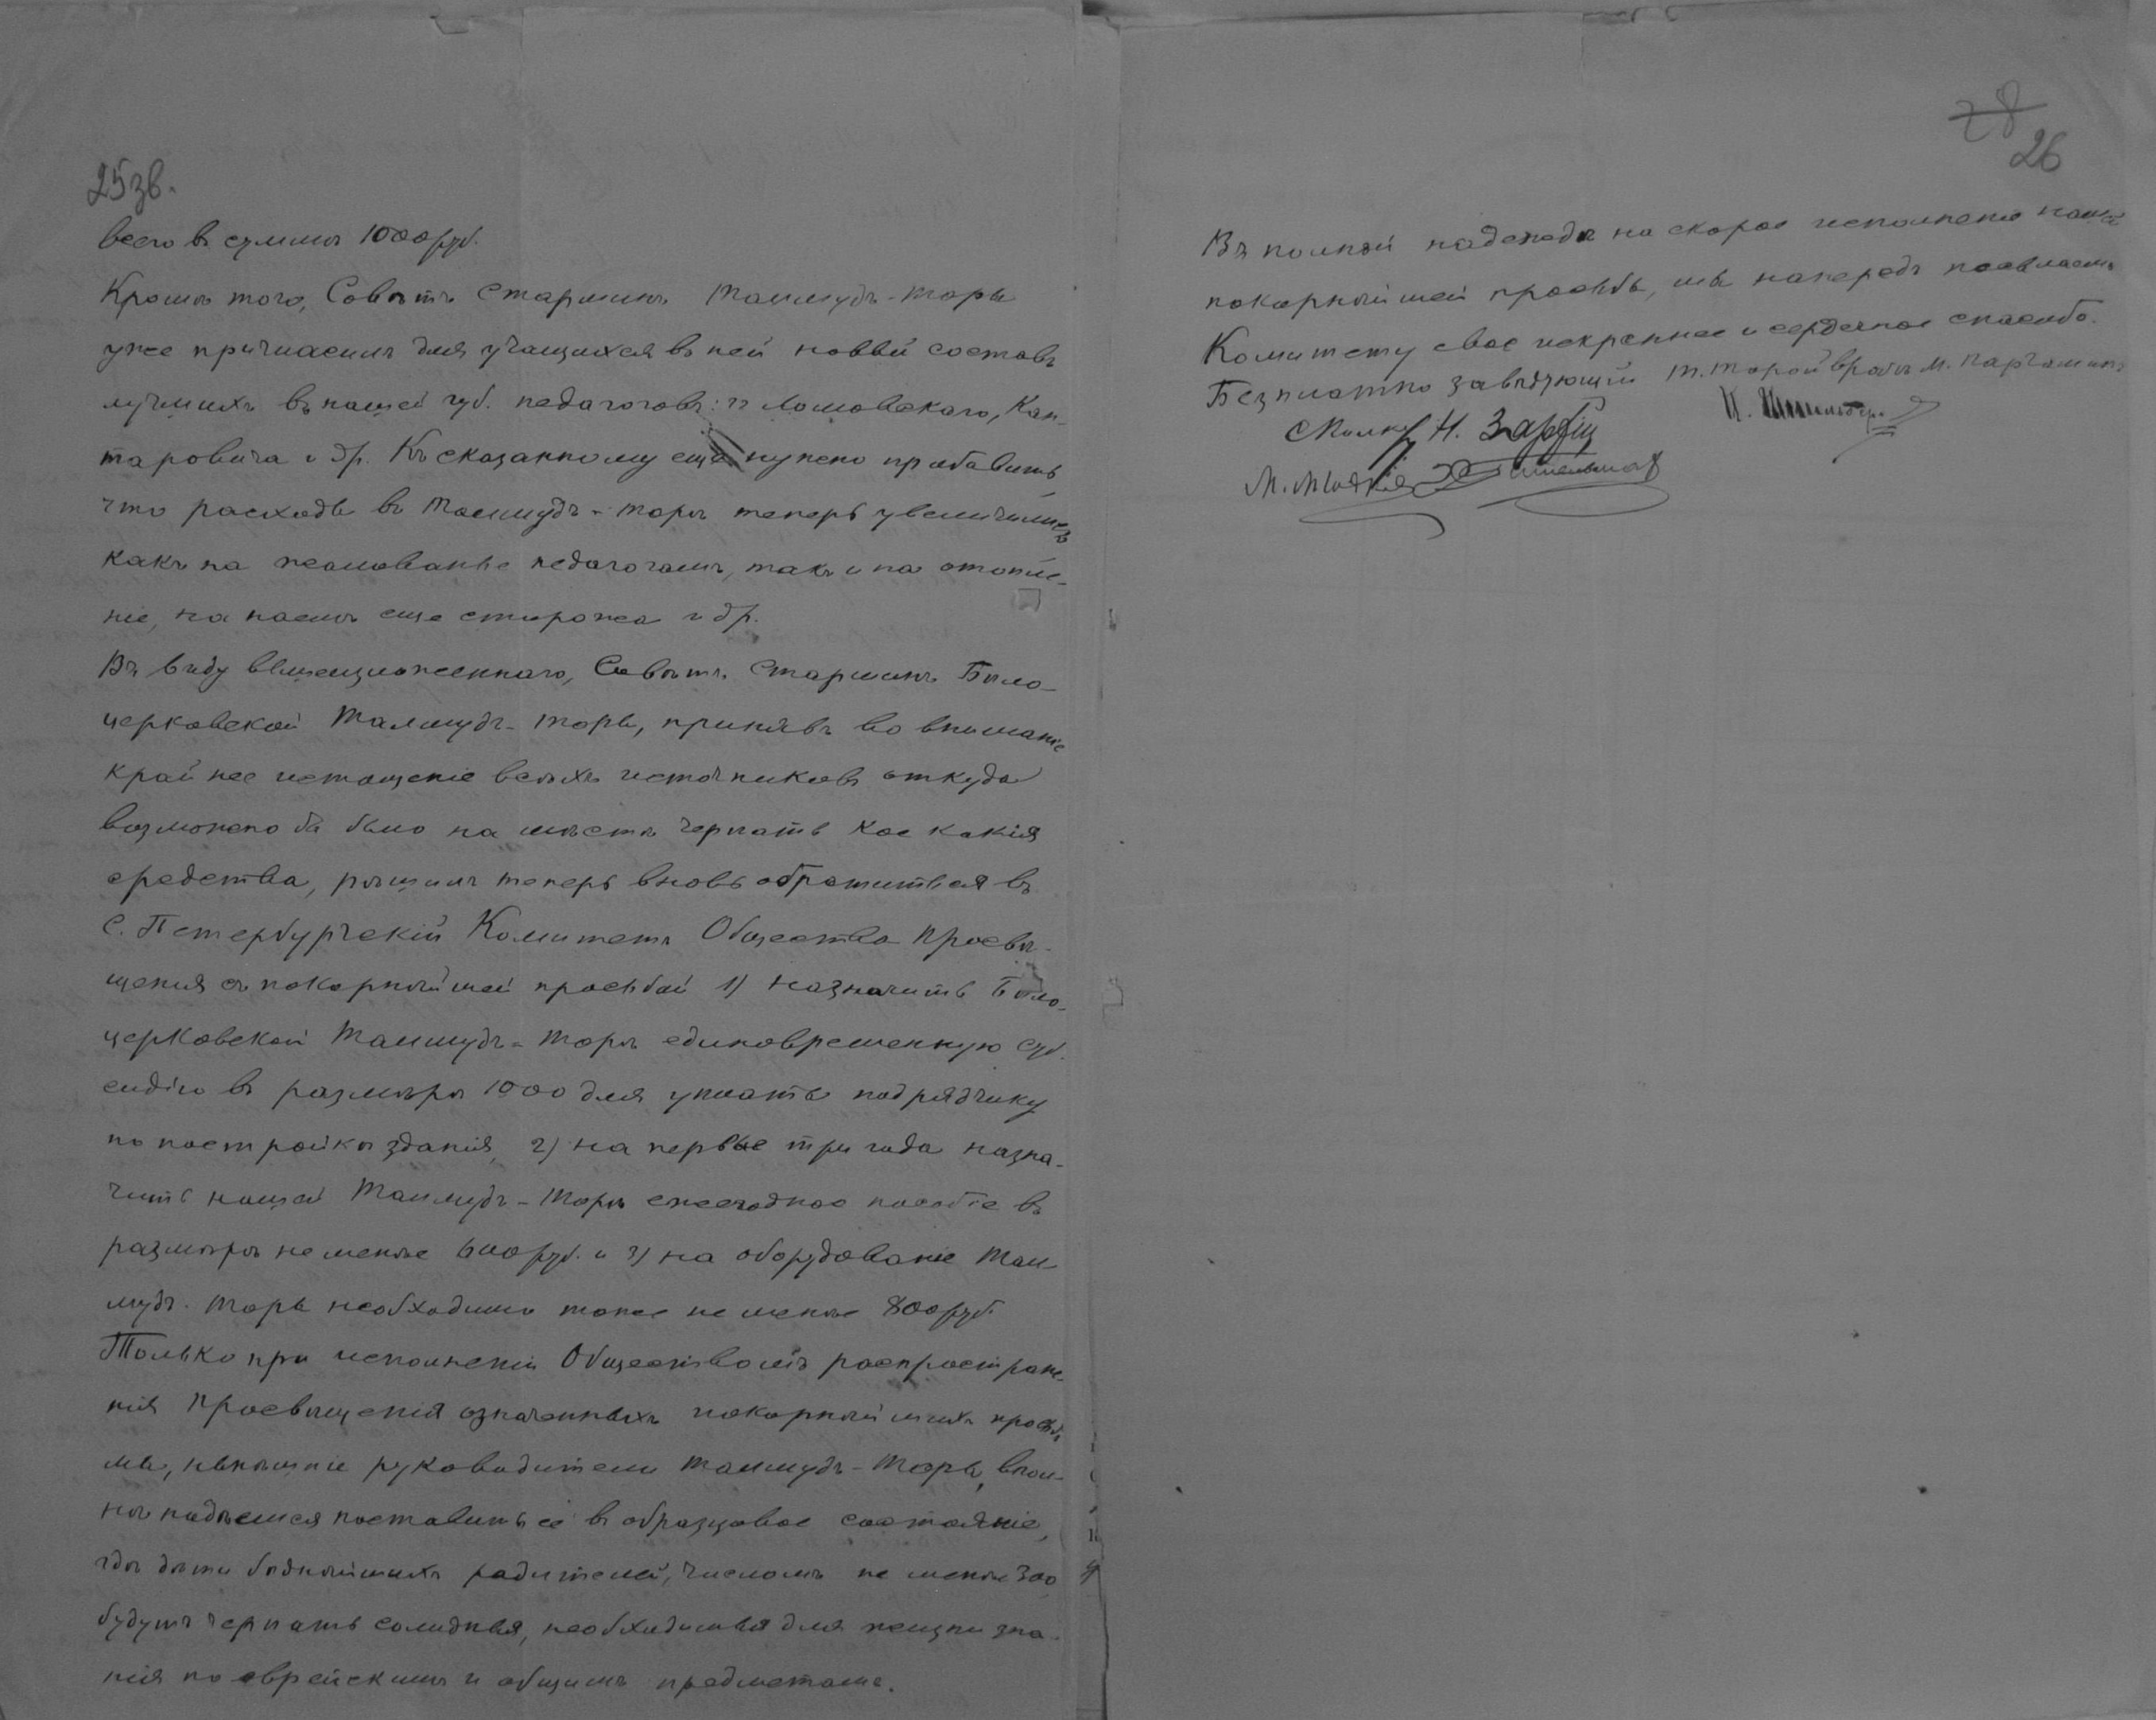 25зв.
всего въ суммѣ 1000 руб.
Кромѣ того, Совѣтъ Старшинъ Талмудъ-торы
уже пригласилъ для учащихся въ ней новый составъ
лучшихъ въ нашей губ. педагоговъ: гг Ломовскаго, Кан-
таровича и др. Къ сказанному еще нужно прибавить
что расходы въ Талмудъ-торѣ теперь увеличились
какъ на жалованье педагогамъ, такъ и на отопле-
ніе, на наемъ еще сторожа и др.
Въ виду вышеизложеннаго, Совѣтъ Старшинъ Бѣло-
церковской Талмудъ-торы, принявъ во вниманіе
крайнее истощеніе всѣхъ источниковъ откуда
возможно бы было на мѣстѣ черпать кое какія
средства, рѣшилъ теперь вновь обратиться въ
С. Петербургскій Комитетъ Общества просвѣ-
щенія съ покорнѣйшей просьбой 1) назначить Бѣло-
церковской Талмудъ-торѣ единовременную суб-
сидію въ размѣрѣ 1000 для уплаты подрядчику
по постройкѣ зданія, 2) на первые три года назна-
чить нашей Талмудъ-Торѣ ежегодное пособіе въ
размѣрѣ не менѣе 600 руб. и 3) на оборудованіе Тал-
мудъ-Торы необходимо тоже не менѣе 800 руб.
Только при исполненіи Обществомъ распростране-
нія просвѣщенія означенныхъ покорнѣйшихъ просьбъ
мы, нынѣшніе руководители Талмудъ-Торы, впол-
нѣ надѣемся поставить ее въ образцовое состояніе,
гдѣ дѣти бѣднѣйшихъ родителей, числомъ не менѣе 300
будутъ черпать солидныя, необходимыя для жизни зна-
нія по еврейскимъ и общимъ предметамъ.
28
26
Въ полной надеждѣ на скорое исполненіе нашей
покорнѣйшей просьбы, мы напередъ посылаемъ
Комитету свое искреннее и сердечное спасибо.
Безплатно завѣдующій т. торой врачъ М. Парчамин
Н.
М.